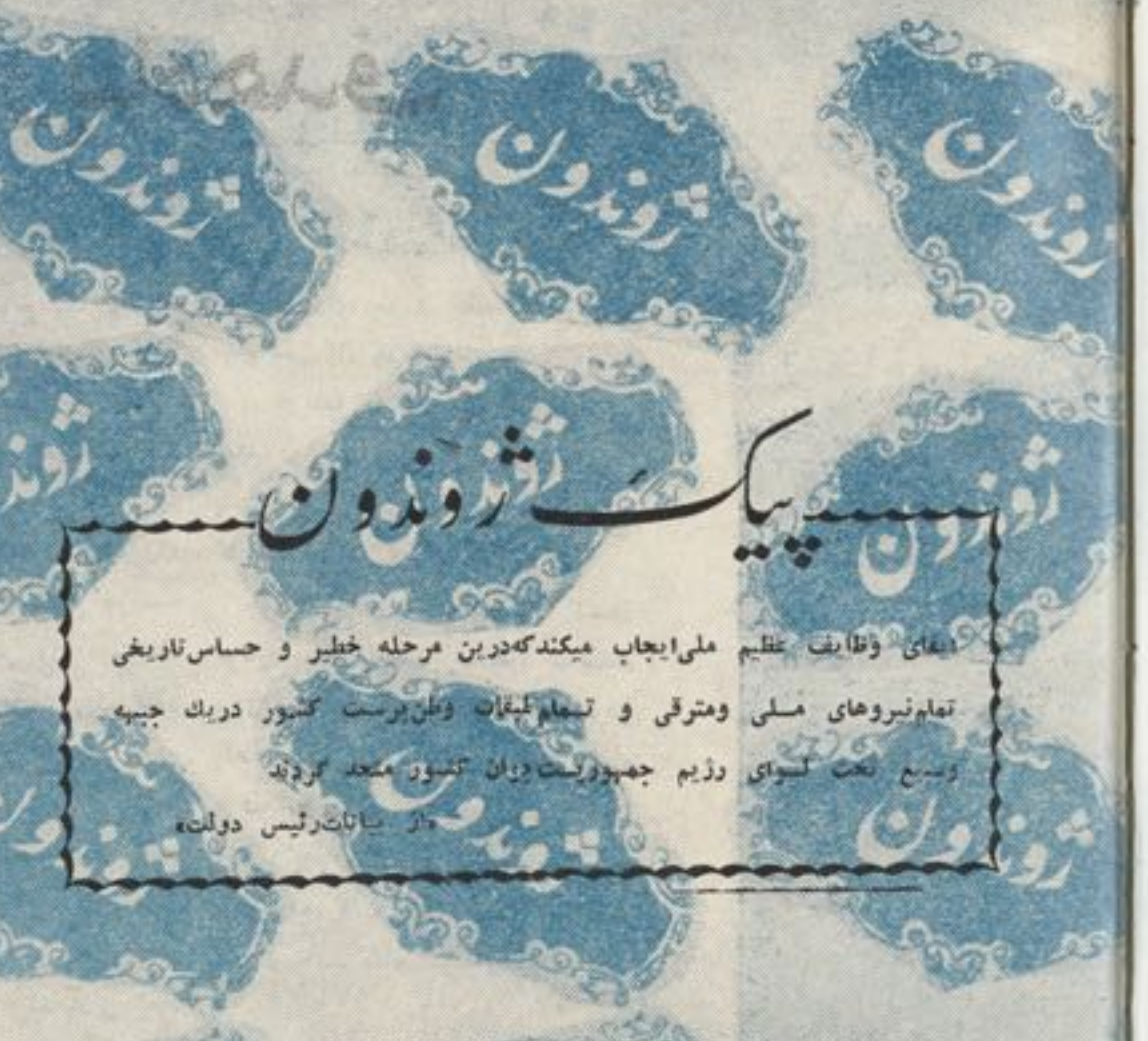 ژوندون ژوندون ژوندون
ژوندون ژوندون ژوند
پیک ژوندون
ایفای وظایف عظیم ملی ایجاب میکند که درین مرحله خطیر و حساس تاریخی
تمام نیروهای ملی ومترقی و تمام طبقات وطن پرست کشور دریک جبهه
وسیع تحت لوای رژیم جمهوریت جوان کشور متحد گردند
«از بیانات رئیس دولت»
ژوندون ژوندون ژوندون